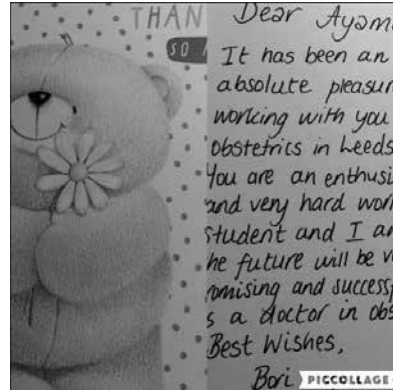 THAN
SO
Dear Ayam
It has been an
absolute pleasur
working with you
obstetrics in Leeds
You are an enthusi
and very hard wor
student and I a
he future will be v
omising and success
s a doctor in obs
Best Wishes,
Bori
PICCOLLAGE